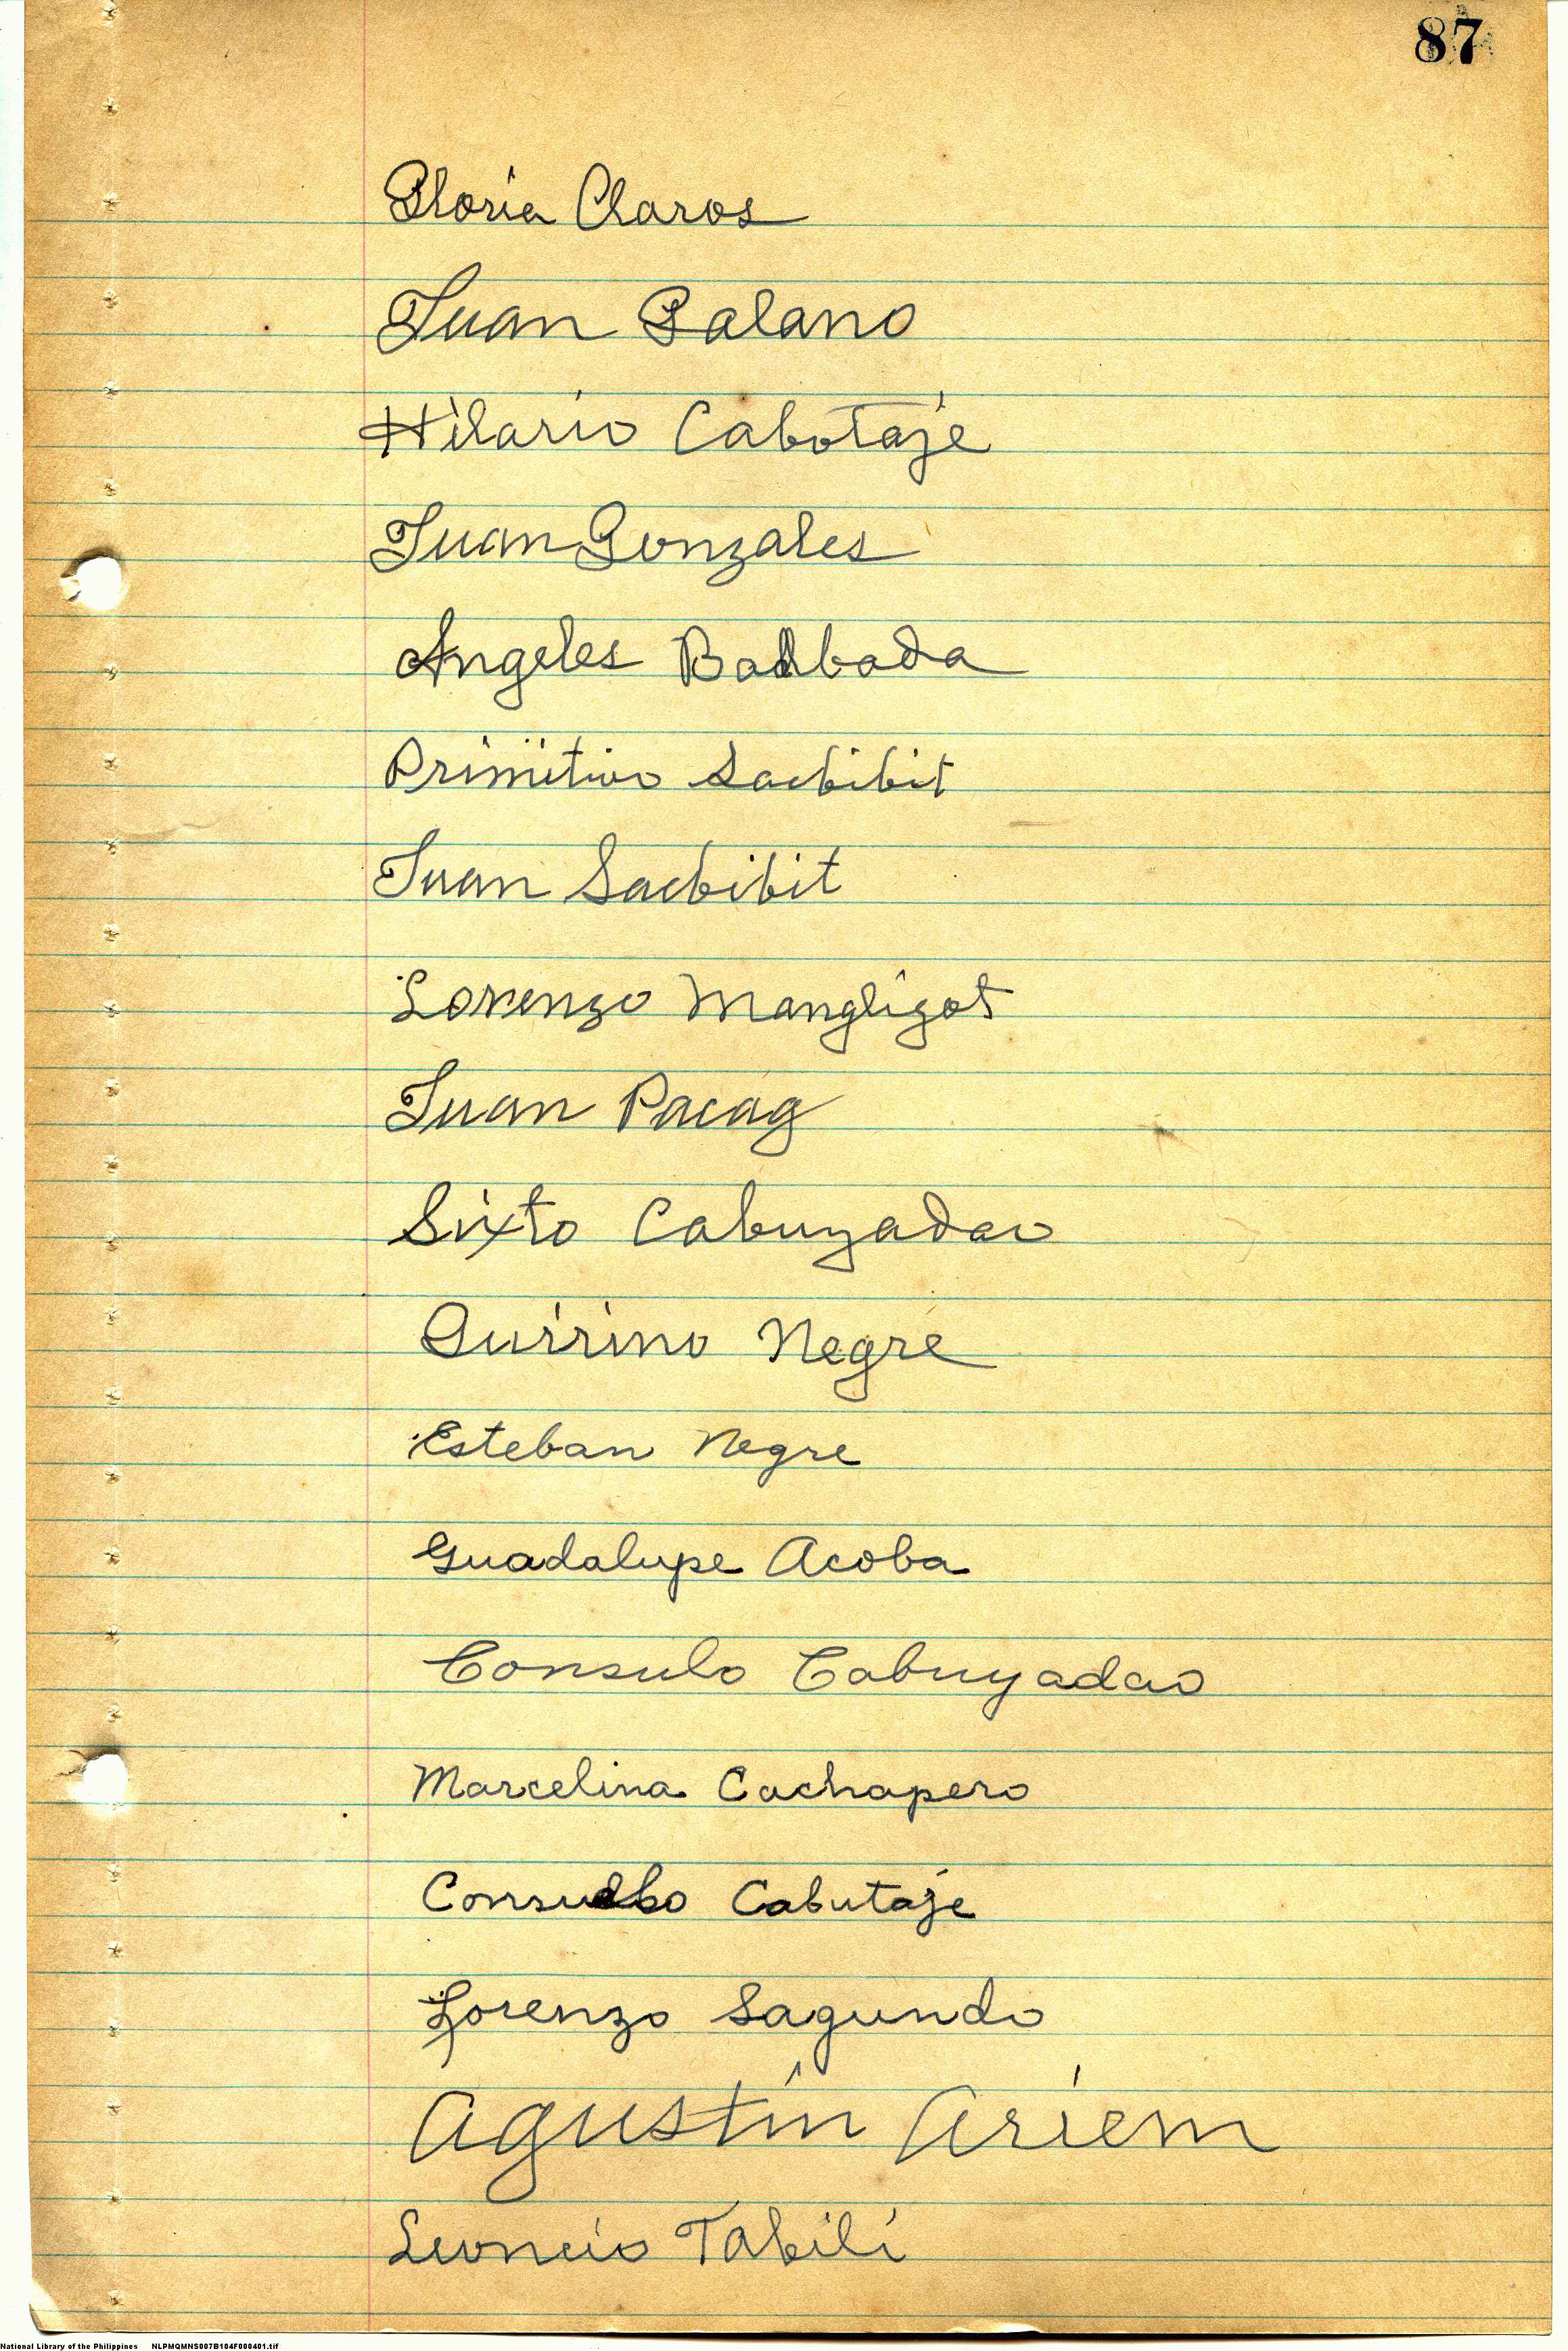 87
Gloria Claros
Juan Galano
Hilario Cabotaje
Juan Gonzales
Angeles Badbada
Primitivo Sacbibit
Juan Sacbibit
Lorenzo Mangligot
Juan Pacag
Sixto Cabuyadao
Quirino Negre
Esteban Negre
Guadalupe Acoba
Consulo Cabuyadao
Marcelina Cachapero
Cabutaje
Lorenzo Sagundo
Agustin Ariem
Leoncio Tabili
National Library of the Philippines NLPMQMNS007B104F000401.tif